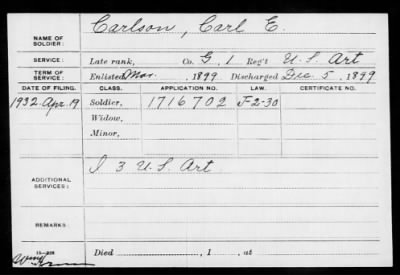 NAME OF SOLDIER: Carlson, Carl E.
SERVICE: Late rank, Co. G, 1 Reg't U.S. Art
TERM OF SERVICE: Enlisted Mar. , 1899 Discharged Dec. 5, 1899
DATE OF FILING. CLASS. APPLICATION NO. LAW. CERTIFICATE NO.
1932 Apr. 19 Soldier, 1716702 J-2-30
Widow,
Minor,
ADDITIONAL SERVICES: I 3 U.S. Art
REMARKS:
Died , 1 , at